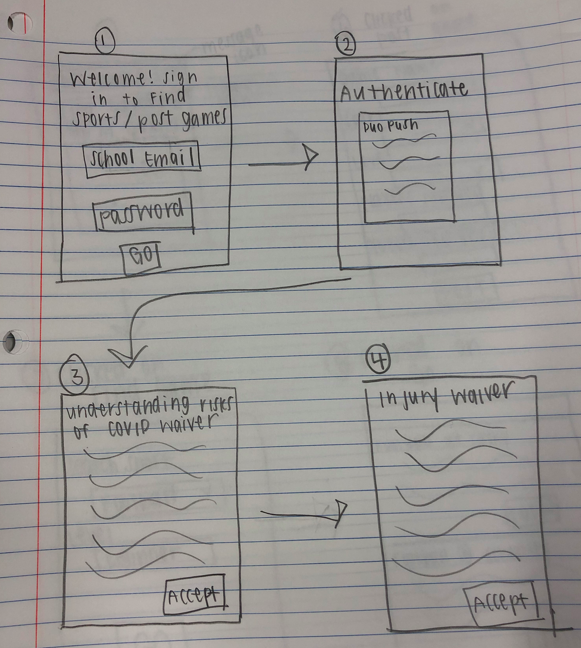 1
Welcome! sign
in to find
sports/post games
School Email
password
GO!
2
Authenticate
Duo Push
3
understanding risks
of COVID waiver
Accept
4
Injury waiver
Accept